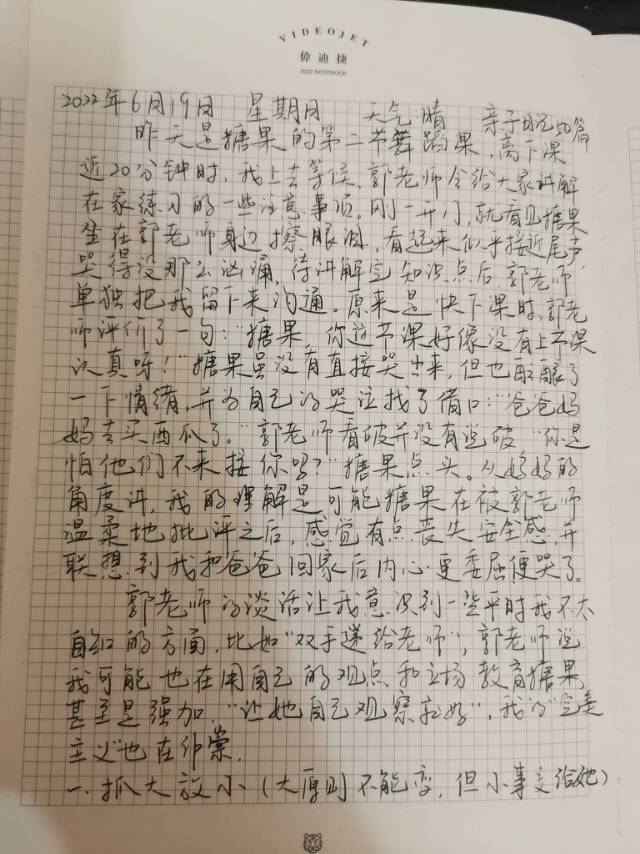 VIDEOJET
偉迪捷
2022 NOTEBOOK
2022年6月19日 星期日 天气:晴 亲子日记50篇
昨天是糖果的第二节舞蹈课,离下课
近20分钟时,我上去等候,郭老师会给大家讲解
在家练习的一些注意事项。刚一开门,就看见糖果
坐在郭老师身边擦眼泪,看起来似乎接近尾声,
哭得没那么汹涌,待讲解完知识点后,郭老师
单独把我留下来沟通。原来是快下课时,郭老
师评价了一句:“糖果,你这节课好像没有上节课
认真呀!”糖果虽没有直接哭出来,但也酝酿了
一下情绪,并为自己的哭泣找了借口:“爸爸妈
妈去买西瓜了。”郭老师看破并没有说破“你是
怕他们不来接你吗?”糖果点头。从妈妈的
角度讲,我的理解是可能糖果在被郭老师
温柔地批评之后,感觉有点丧失安全感,并
联想到我和爸爸回家后内心更委屈便哭了。
郭老师的谈话让我意识到一些平时我不太
自知的方面,比如“双手递给老师”,郭老师说
我可能也在用自己的观点和立场教育糖果,
甚至是强加,“让她自己观察就好”,我的“完美
主义”也在作祟.
一.抓大放小(大原则不能变,但小事交给她)